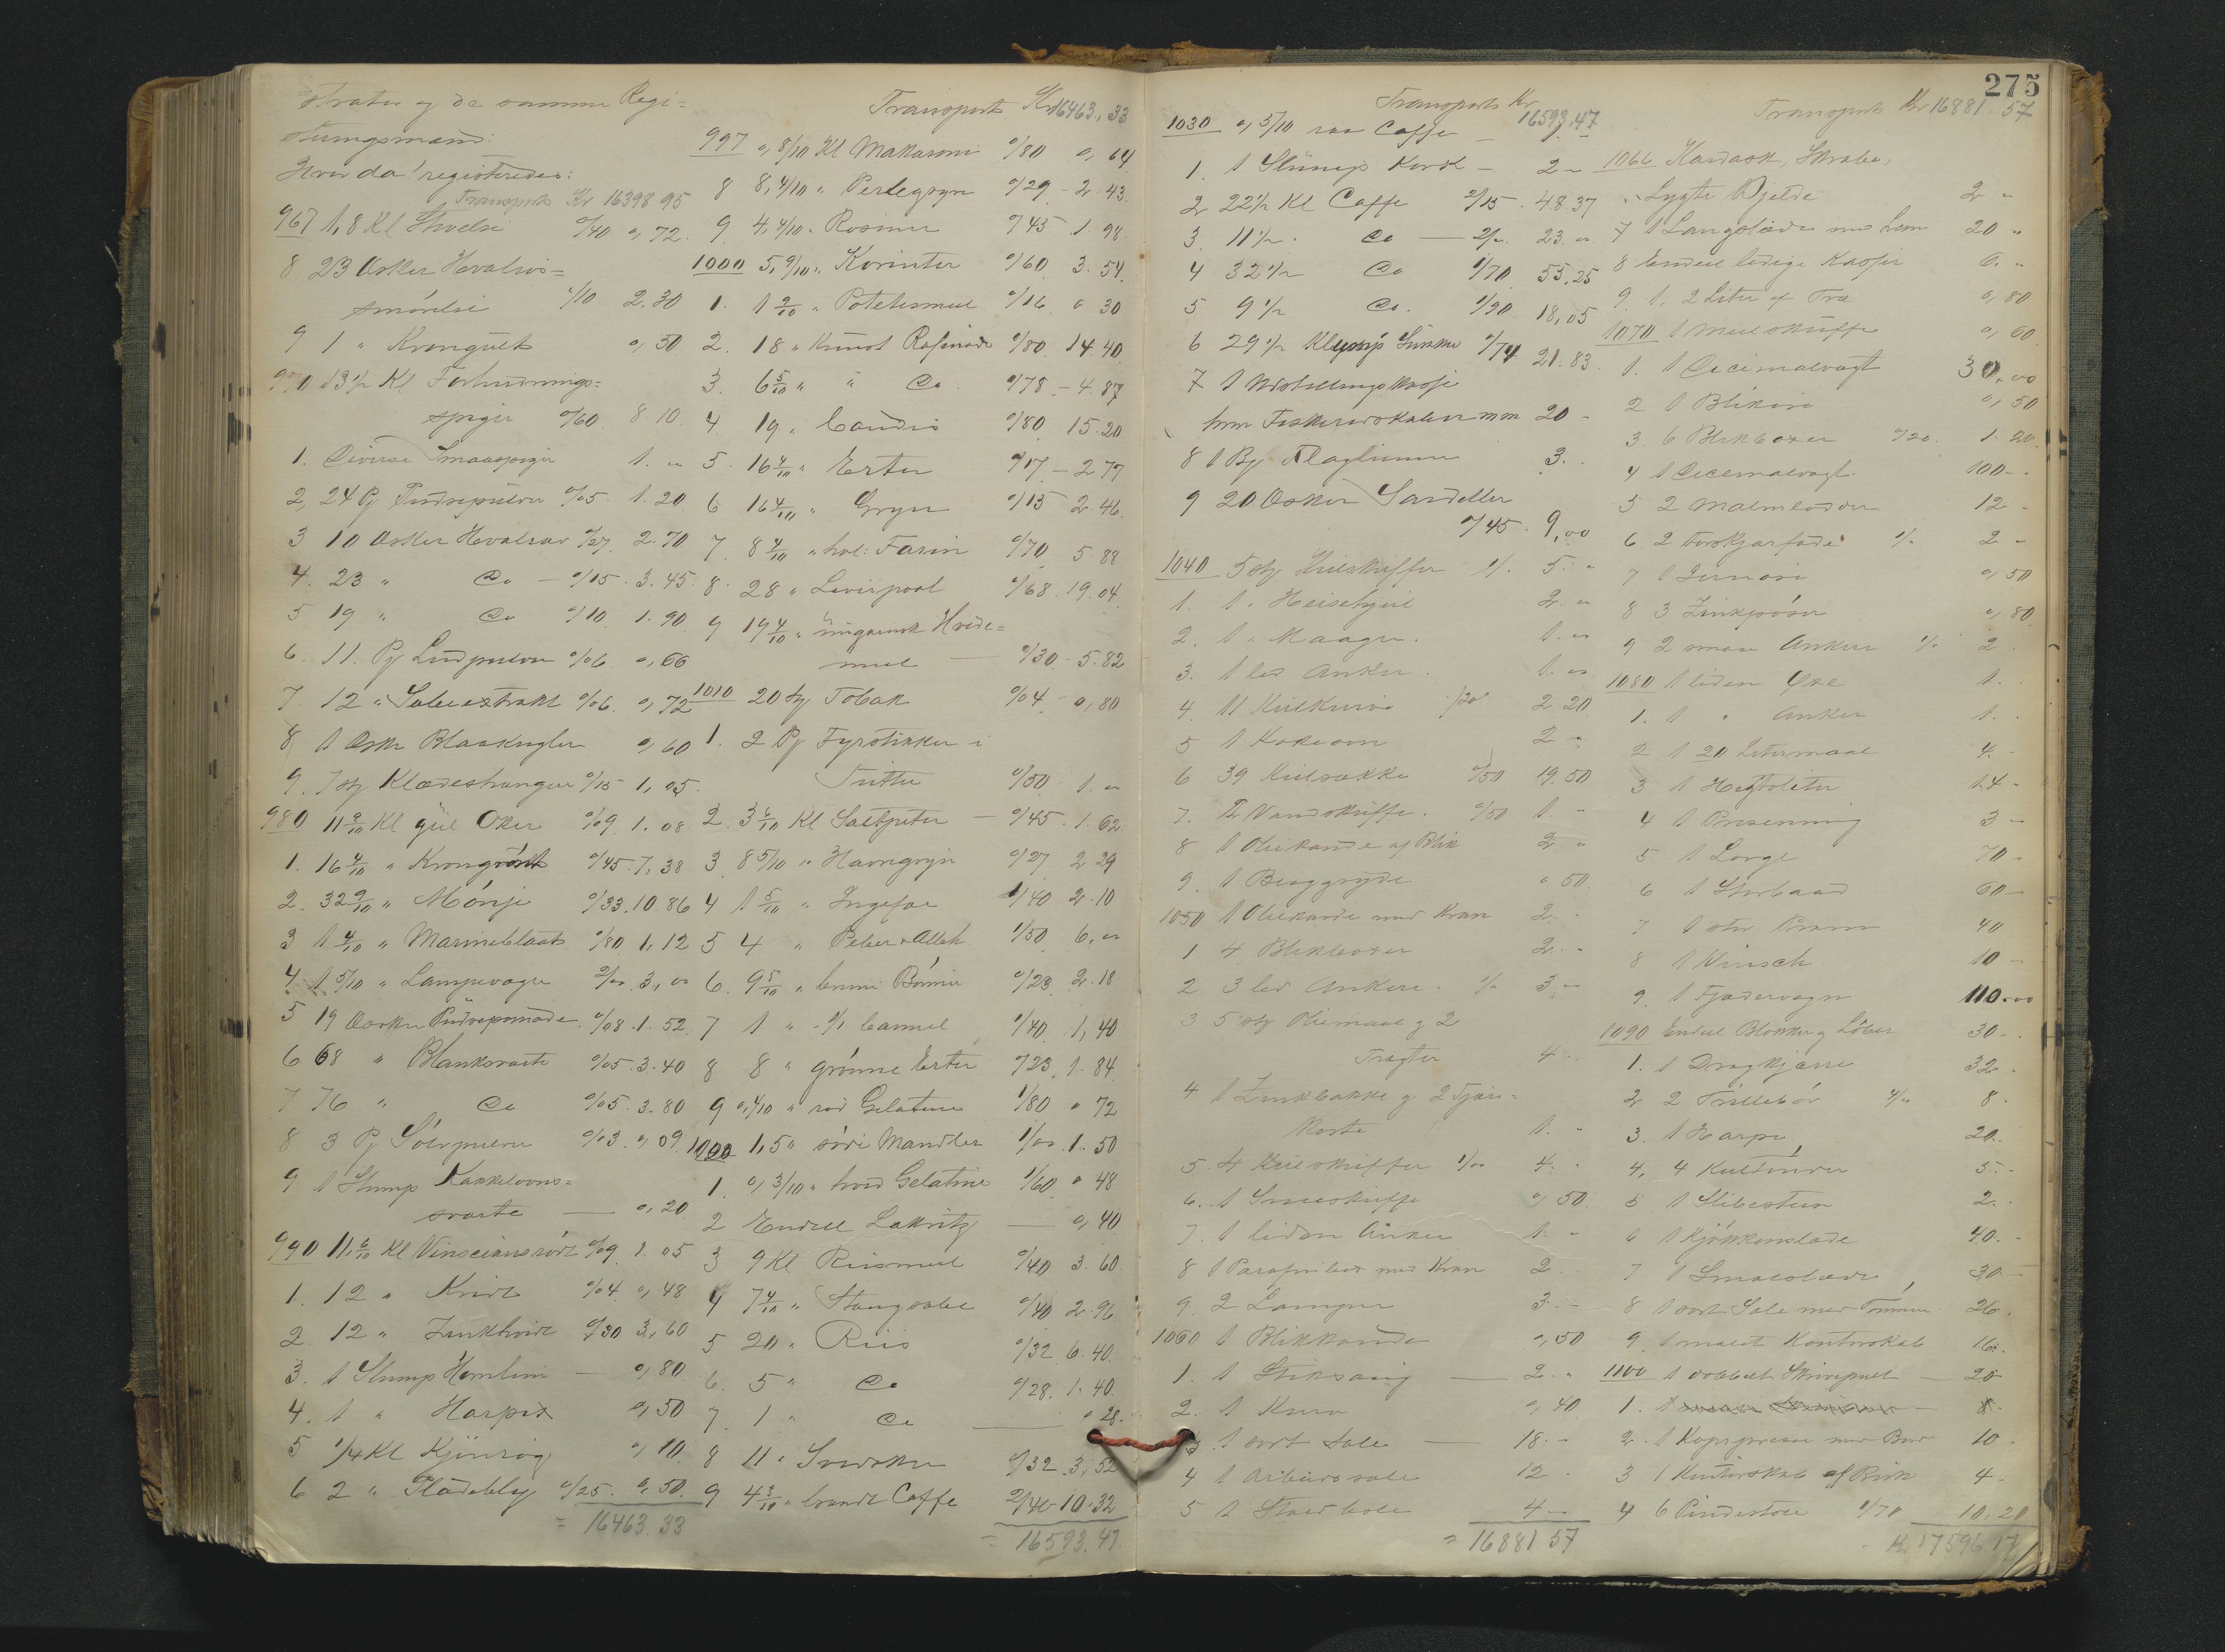 strater og de samme Regi=
streringsmænd:
Hvor da registreredes:
Transport Kr 16398 95
967 1,8 Kl Stivelse 0/40 0,72.
8 23 Æsker Hvalros=
smørelse 0/10 2.30
9 1 " Krongult 0,30
970 13 1/2 Kl Forhudnings=
spiger 0/60 8 10
1. Diverse Smaaspiger 1. "
2, 24 Pj Pudsepulver 0/05 1.20
3 10 Æsker Hvalrav 0/27 2.70
4. 23 " Do — 0/15. 3.45.
5 19 " Do 0/10 1.90
6. 11. Pj Ludpulver 0/06 0,66
7. 12 " Sæbeextrakt 0/06. 0,72
8 1 Æske Blaakugler 0,60
9. 7 stj Klædeshænger 0/15 1,05.
980 11 9/10 Kl gul Oker 0/09 1.08
1. 16 4/10 " Krongrønt 0/45. 7,38
2. 32 9/10 " Mónje 0/33. 10 86
3 1 4/10 " Marineblaat 0/80 1,12
4. 1 5/10 " Lampevæger 2/00. 3,00
5 19 Æsker Pudsepomade. 0/08. 1.52
6 68 " Blanksværte 0/05. 3.40
7 76 " Do 0/05. 3.80
8 3 Pj Sólvpulver 0/03. 0,09
9 1 Slump Kakkelovns=
sværte — 0,20
990 11,6/10 Kl Vinseiansrødt 0/09 1.05
1. 12 " Kridt 0/04 0,48
2. 12 " Zinkhvidt 0/30 3,60
3. 1 Slump Hamlin — 0,80
4. 1 " Harpix 0,50
5 0/4 Kl Kjönrøg 0,10.
6 2 " Pladebly 0/25. 0,50.
= 16463.33
Transport Kr 16463,33
997 0,8/10 Kl Makaroni 0/80 0,64
8 8,4/10 " Perlegryn 0/29 - 2.43.
9. 4,4/10 " Rosiner 0/45 1.98.
1000 5,9/10 " Korinter 0/60. 3.54.
1. 1 9/10 " Potetesmeel 0/16. 0 30
2. 18 " Knust Rafinade 0/80. 14.40
3. 6 5/10 " " Do. 0/75 - 4.87
4 19 " Candis 0/80 15.20
5. 16 4/10 " Erter 0/17 - 2 77
6 16 4/10 " Gryn 0/15 2.46.
7. 8 4/10 " hol: Farin 0/70 5 88
8. 28 " Liverpool 0/68. 19.04.
9 19 4/10 " ungarnsk Hvede=
meel — 0/30 - 5.82
1010 20 stj Tobak 0/04 - 0,80
1. 2 Pj Fyrstikker i
Tutter 0/50 - 1. "
2. 3 6/10 Kl Saltpeter — 0/45. 1.62.
3 8 5/10 " Havregryn 0/27 2 29
4 1 5/10 " Ingefær 1/40 2.10
5 4 " Peber & Alleh 1/50 6,00
6. 9 5/10 " brune Bønner 0/23 2.18
7 1 " Cannel 1/40. 1,40
8 8 " grønne Erter 0/23. 1.84.
9 0,4/10 " rød Gelatine 1/80 0 72
1020 1,5 " søde Mandler 1/00 1.50
1. 0,3/10 " hvid Gelatine 1/60 0 48
2 Endeel Lakritz — 0,40
3 9 Kl Riismeel 0/40 3.60.
4 7 4/10 " Stangsæbe 0/40 2.96.
5 20 " Riis 0/32 6.40.
6. 5 " Do 0/28. 1.40
7 1 " Do — 0 28.
8 11 " Svedsker 0/32. 3,52
9 4 3/10 " brændt Caffe 2/40 10.32
= 16593.47
275
Transport Kr 16593,47
1030 0,5/10 raa Caffe — 1. -
1. 1 Slump Kork — 2 -
2 22 1/2 Kl Caffe 2/15. 48.37
3. 11 1/2 . Do — 2/00. 23. "
4 32 1/2 Do 1/70. 55,25
5 9 1/2 Do. 1/90 18,05
6 29 1/2 Klump Sukker 0/74 21.83.
7 1 Udstillingskasse
hvor Fiskeredskaber m m 20 -
8 1 Bj Flagliner 3. -
9 20 Æsker Sardeller
0/45. 9,00
1040 5 stj Kulskuffer 1/. 5. "
1. 1 " Heisehjul 2 "
2. 1 " Maager. 1. "
3. 1 led Anker. 1. "
4. 11 Kulkurve 0/20 2 20
5 1 Kokeovn 2 -
6 39 Kulsække 0/50 19.50
7. 2 Vandskuffe. 0/50 1. -
8 1 Oliekande af Blik 2 "
9. 1 Beggryde 0 50.
1050 1 Oliekande med Kran 2. -
1 4 Blikboxer 2. -
2 3 led Ankere. 1/00 3 -
3 5 stj Oliemaal og 2
Tragter 4 -
4 1 Zinkbakke og 2 Tjære=
koste 1. -
5. 4 Kulskuffer 1/00 4. -
6. 1 Sneeskuffe 0,50
7. 1 liden Anker 1. -
8 1 Parafinfad med Kran 2.
9. 2 Lamper 3. -
1060 1 Blikkande 0,50
1. 1 Stiksaug — 2. "
2. 1 Kurv 0,40
3 1 sort Sele — 18. -
4 1 Arbeidssele 12 -
5 1 Staldbale 4 -
= 16881 57
Transport Kr 16881.57
1066 Kardask, Skrabe,
Lygte Bjelde 2 "
7 1 Langslæde med Lem 20 "
8 Endeel ledige Kasser 6. "
9. 1. 2 Liter af Træ 0,80
1070 1 Meelskuffe 0,60
1. 1 Decimalvægt 30,00
2 1 Blikøse 0,50
3. 6 Blikboxer 0/20. 1.20.
4 1 Decimalvægt. 100 -
5 2 Malmlodder 12 -
6. 2 Torskjærfade 1/. 2 -
7 1 Jernøse 0,50
8 3 Zinkpøser 0,80.
9 2 smaa Ankere 1/. 2.
1080 1 liden Øse 1.
1. 1 " Anker 1.
2 1 20 Litermaal 4. -
3 1 Hegtoliter 14 -
4 1 Presenning 3 -
5 1 Lorge 70 -
6 1 Storbaad 60 -
7 1 stor Pram 40
8 1 Winsch 10 -
9. 1 Fjædervogn 110.00
1090 Endeel Blokke og Løbere 30 -
1. 1 Dragkjærre 32 -
2 2 Trillebør 4/00 8.
3. 1 Harpe 20.
4, 4 Kultønder 5. -
5 1 Slibesteen 2.
6 1 Kjøkkenslæde 40. -
7 1 Smalslæde 30 -
8 1 sort Sele med Tømme 26.
9. 1 malet Kontorskab 16.
1100 1 dobbelt Skrivepult — 20
1. 1 — 8.
2. 1 Kopipresse med Bor 10 -
3 1 Kontorskab af Birk 4 -
4 6 Pindestole 1/70 10.20
Kr. 17596.17